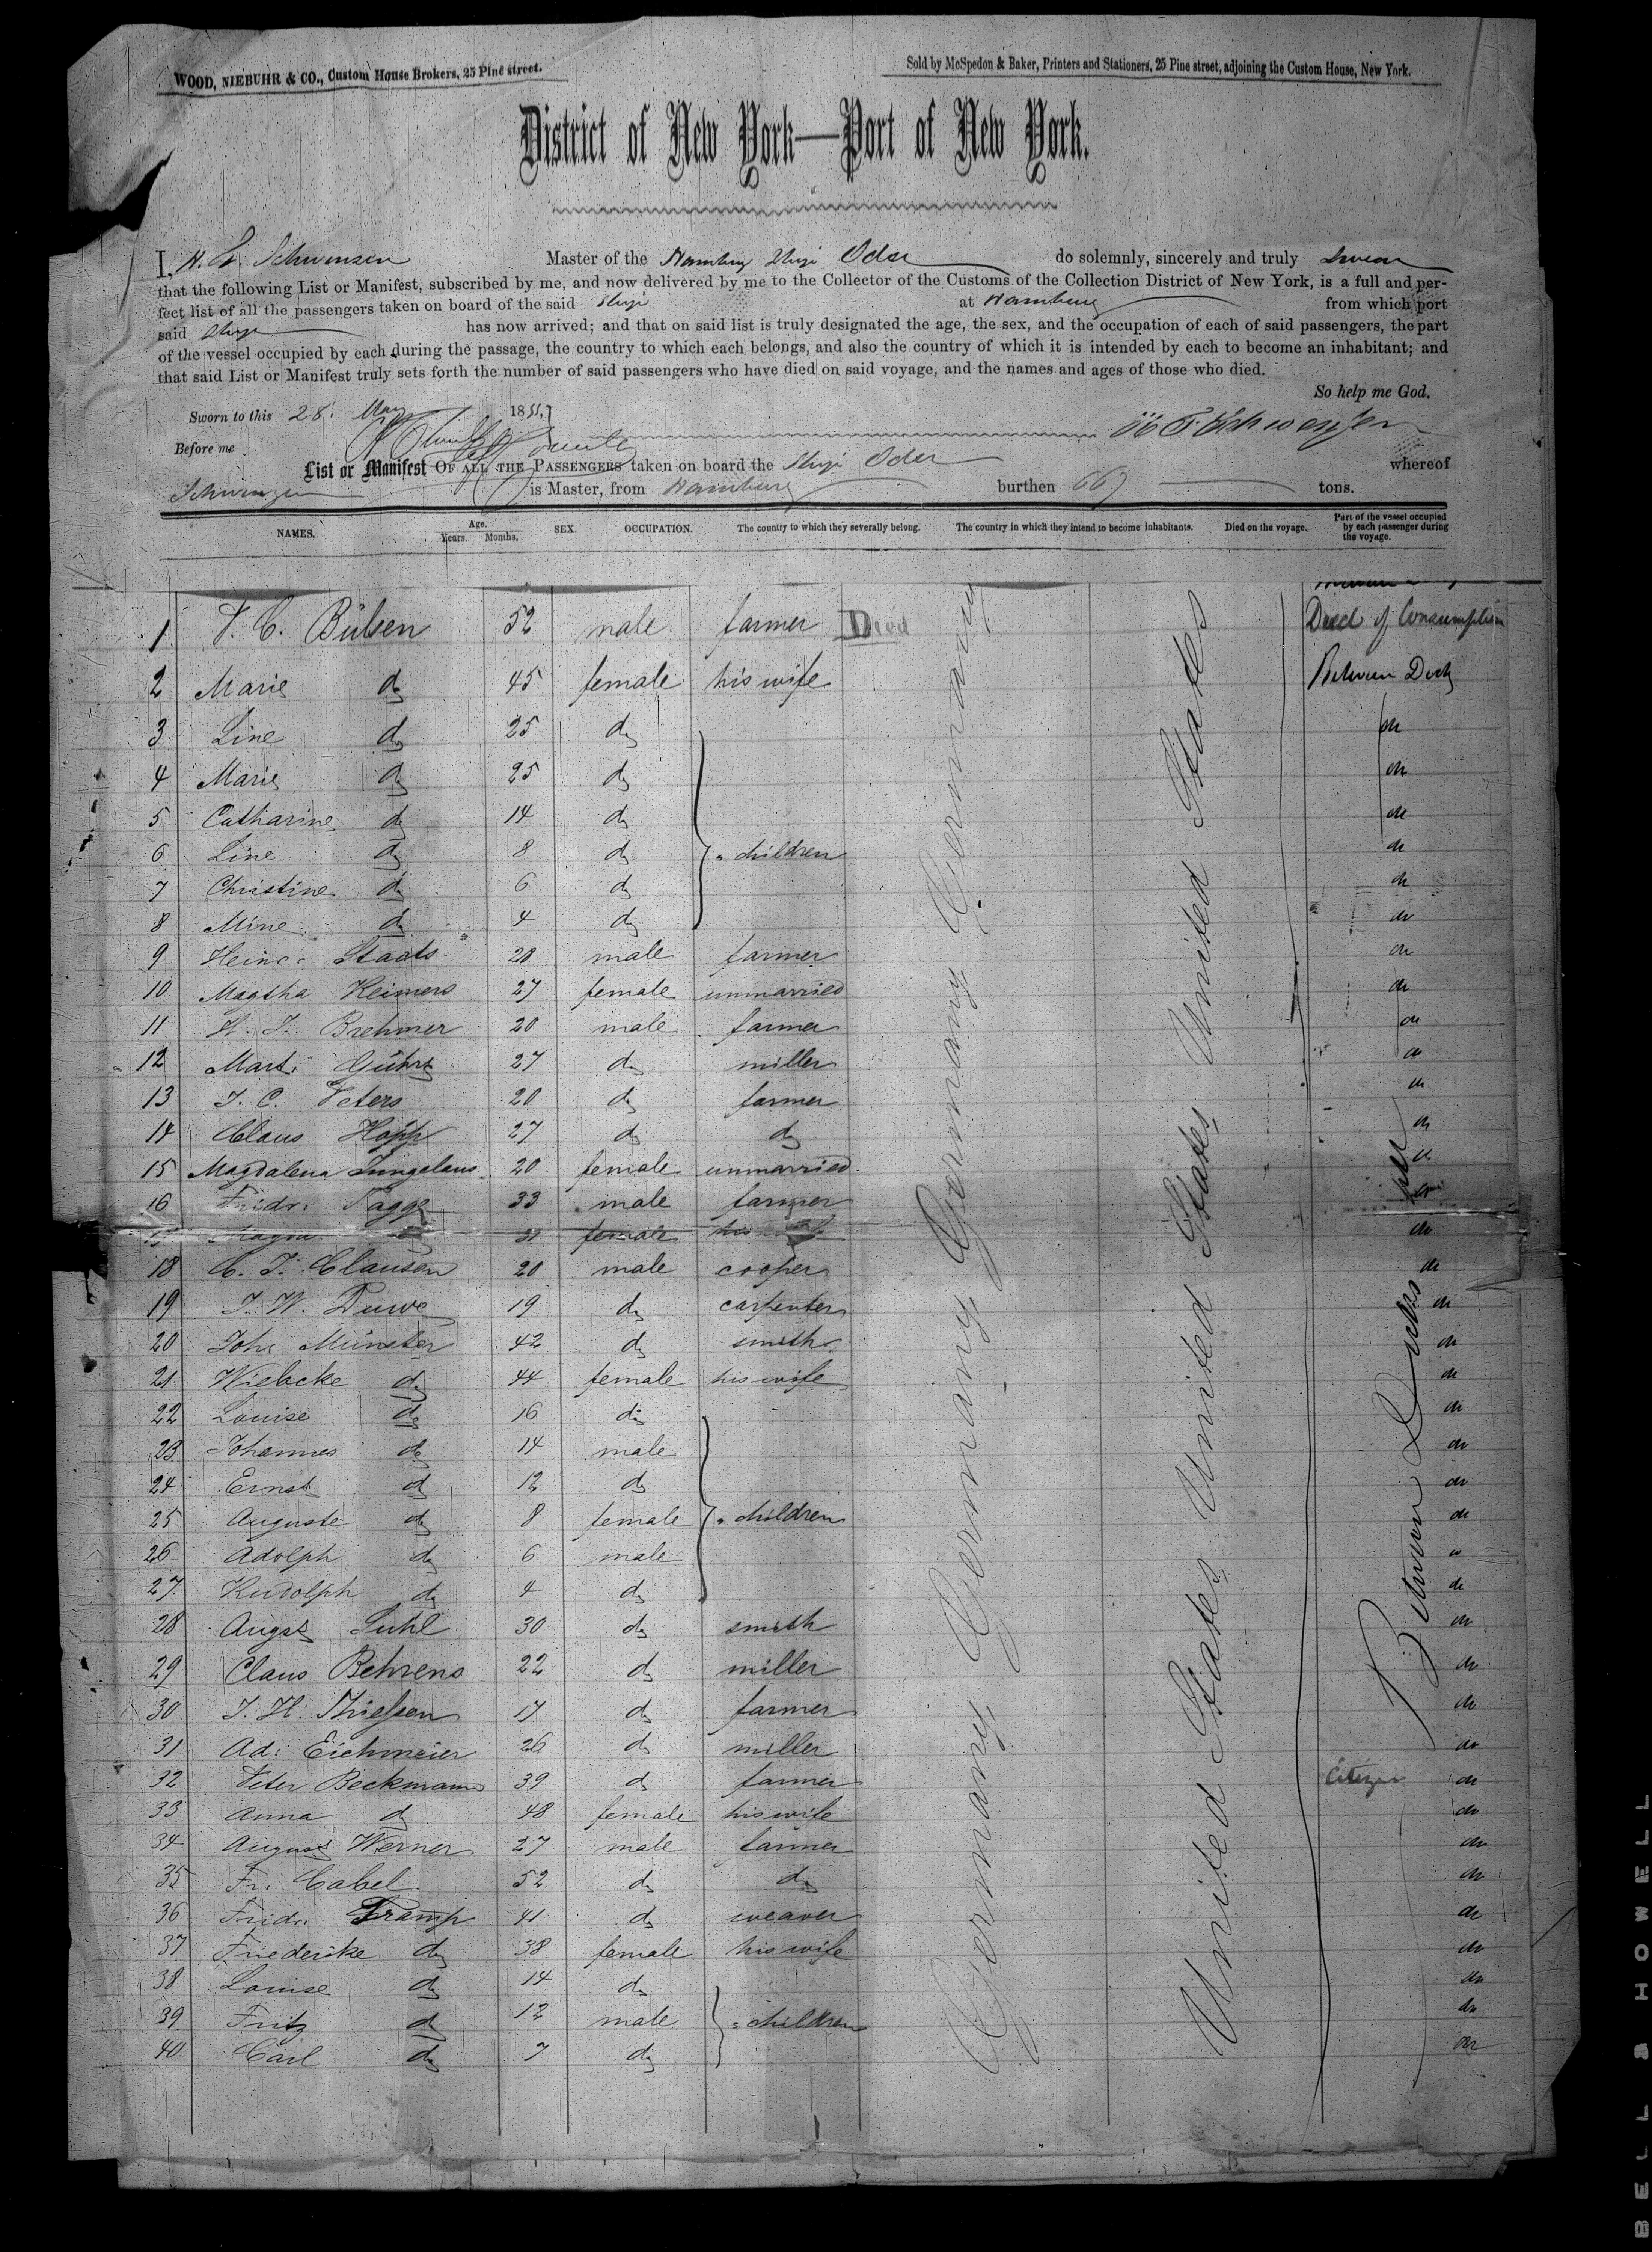 WOOD, NIEBUHR & CO., Custom House Brokers, 25 Pine street.
Sold by McSpedon & Baker, Printers and Stationers, 25 Pine street, adjoining the Custom House, New York.
District of New York—Port of New York.
I, Schwensen Master of the Hamburg Ship Oder do solemnly, sincerely and truly swear
that the following List or Manifest, subscribed by me, and now delivered by me to the Collector of the Customs of the Collection District of New York, is a full and per-
fect list of all the passengers taken on board of the said Ship at Hamburg from which port
said Ship has now arrived; and that on said list is truly designated the age, the sex, and the occupation of each of said passengers, the part
of the vessel occupied by each during the passage, the country to which each belongs, and also the country of which it is intended by each to become an inhabitant; and
that said List or Manifest truly sets forth the number of said passengers who have died on said voyage, and the names and ages of those who died.
So help me God.
Sworn to this 28. May 1851,
Before me
List or Manifest OF ALL THE PASSENGERS taken on board the Ship Oder whereof
is Master, from Hamburg burthen 667 tons.
NAMES. Age. Years. Months. SEX. OCCUPATION. The country to which they severally belong. The country in which they intend to become inhabitants. Died on the voyage. Part of the vessel occupied by each passenger during the voyage.
1 Bülsen 52 male farmer Died Died of Consumption
2 Marie do 45 female his wife Between Deck
3 Line do 25 do do
4 Marie do 25 do do
5 Catharine do 14 do do
6 Line do 8 do children do
7 Christine do 6 do do
8 Mine do 4 do do
9 Heinr: Staats 28 male farmer do
10 Magtha Reimers 27 female unmarried do
11 H. J. Brehmer 20 male farmer do
12 Mart: 27 do miller do
13 J. C. Peters 20 do farmer do
14 Claus Höpp 27 do do do
15 Magdalena Jungclaus 20 female unmarried do
16 Fridr: Tagge 33 male farmer do
female his do
18 C. J. Clausen 20 male cooper do
19 J. W. Duwe 19 do carpenter do
20 Joh: Münster 42 do smith do
21 Wiebcke do 44 female his wife do
22 Louise do 16 do do
23 Johannes do 14 male do
24 Ernst do 12 do do
25 Auguste do 8 female children do
26 Adolph do 6 male do
27 Rudolph do 4 do do
28 August Suhl 30 do smith do
29 Claus Behrens 22 do miller do
30 J. H. Thießen 17 do farmer do
31 Ad: Eichmeier 26 do miller do
32 Peter Beckmann 39 do farmer Citizen do
33 Anna do 48 female his wife do
34 August Werner 27 male farmer do
35 Fr: Cabel 52 do do do
36 Fridr: Tramp 41 do weaver do
37 Friederike do 38 female his wife do
38 Louise do 14 do do
39 Fritz do 12 male children do
40 Carl do 7 do do
Germany Germany Germany Germany Germany
United States United States United States
Between Decks
BELL & HOWELL